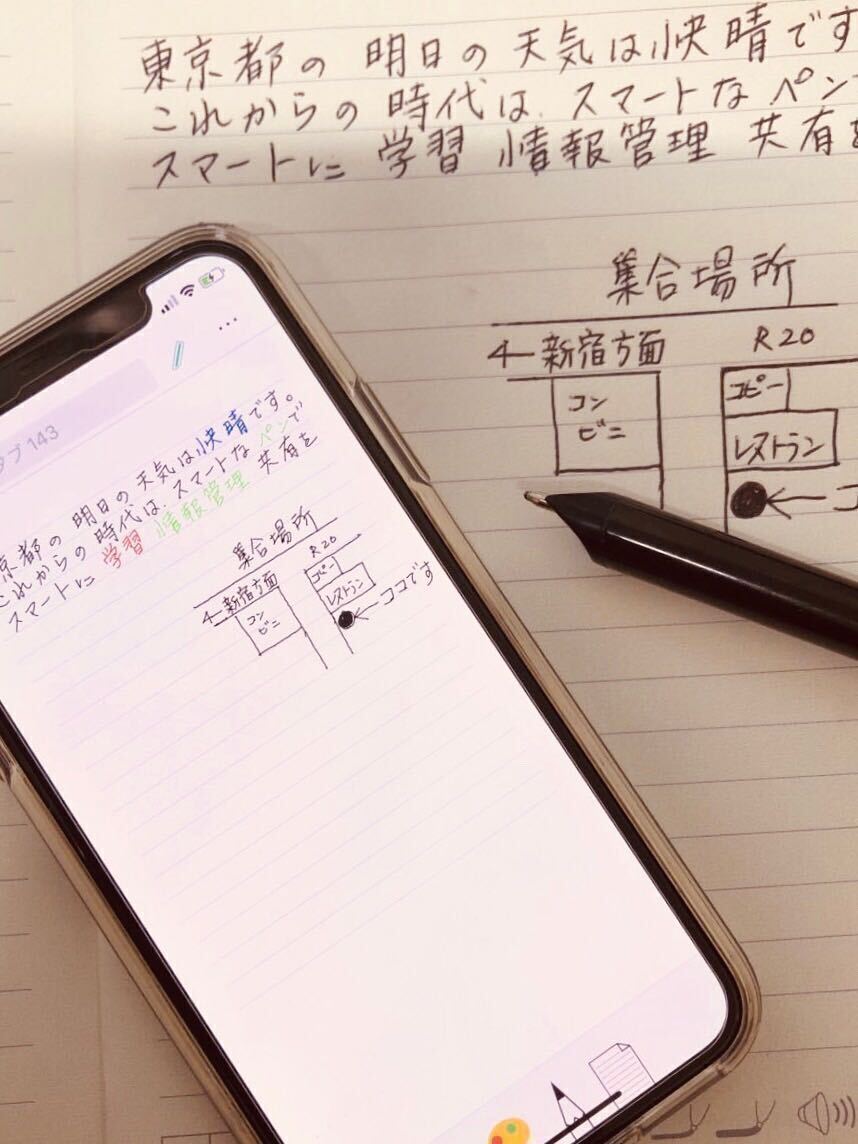 東京都の 明日の 天気は快晴です
これからの 時代は、スマートな ペン
スマートに 学習 情報管理 共有を
集合場所
新宿方面
R20
コン
ビニ
コピー
レストラン
コ
143
京都の 明日の 天気は快晴です。
これからの 時代は、スマートな ペンで
スマートに 学習 情報管理 共有を
集合場所
R20
新宿方面
コピー
コン
ビニ
レストラン
ココです